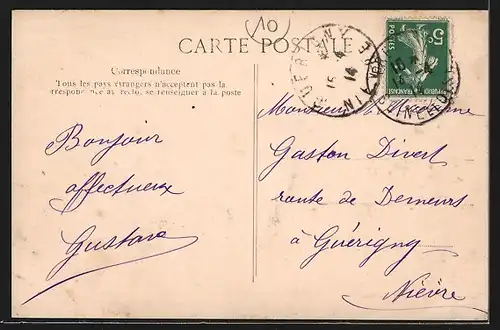 (10)
CARTE POSTALE
Correspondance
Tous les pays étrangers n'acceptent pas la
correspondance au recto, se renseigner à la poste
5c
POSTES
REPUBLIQUE FRANÇAISE
Bonjour
affectueux
Gustave
Monsieur et Madame
Gaston Divert
route de Demeurs
à Guérigny
Nièvre